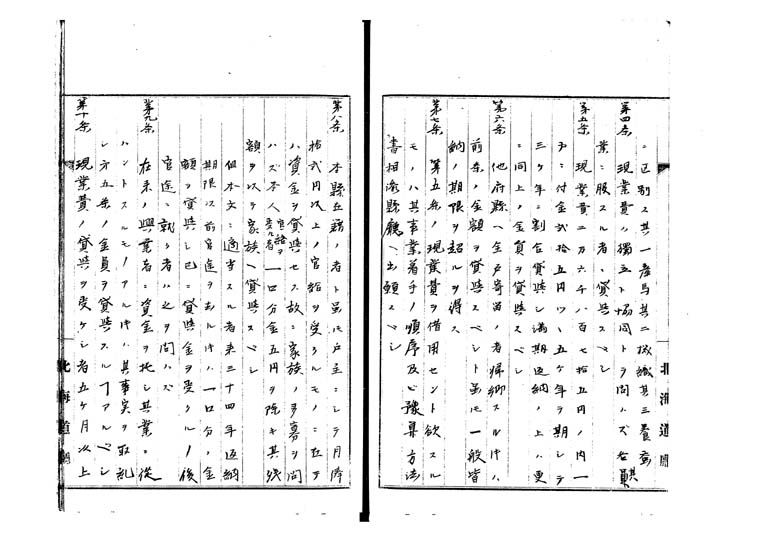 ニ区別ス其一産馬其二機織其三養蚕
第四条
現業費ハ獨立ト協同トヲ問ハズ右典
業ニ服スル者ニ貸與スベシ
第五条
現業費ニ万六千八百七拾五円ノ内一
戸ニ付金弐拾五円ツヽ五ケ年ヲ期シテ
三ケ年ニ割合貸與シ満期返納ノ上ハ更
ニ同上ノ金員ヲ貸與スベシ
第六条
他府縣ヘ全戸寄留ノ者帰郷スル片ハ
前条ノ金額ヲ貸與スベシト虽モ一般皆
納ノ期限ヲ超ルヲ得ス
第七条
第五条ノ現業費ヲ借用セント欲スル
モノハ其事業着手ノ順序及ヒ豫算方法
書相添縣廳ヘ出願スベシ
第八条
本縣士籍ノ者ト虽モ戸主ニシテ月俸
拾弐円以上ノ官給ヲ受クルモノニ在テ
ハ資金ヲ貸與セス故ニ家族ノ多寡ヲ問
ハズ本人官禄ヲ受ル者一口分金五円ヲ除キ其残
額ヲ以テ家族ヘ貸與スベシ
但本文ニ適当スル者来三十四年返納
期限以前官途ヲ去ル片ハ一口分ノ金
額ヲ貸與シ已ニ貸與金ヲ受クルノ後
官途ニ就ク者ハ之ヲ問ハズ
第九条
在来ノ興業者ニ資金ヲ

ハントスルモノアル片ハ其事実ヲ取糺
シ方五条ノ金員ヲ貸與スルコアルベシ
第十条
現業費ノ貸與ヲ受ケシ者五ケ月以上
北海道廳
北海道廳